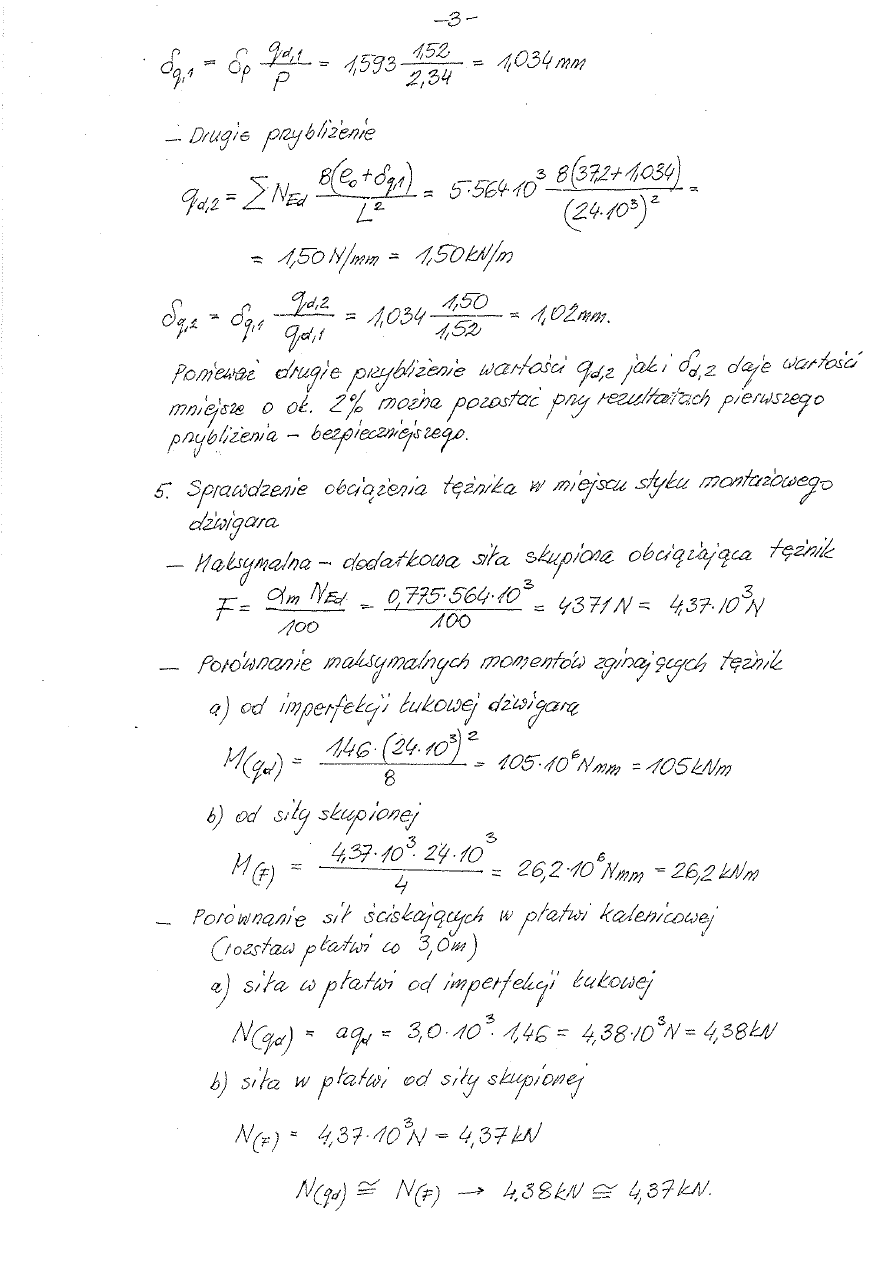 -3-
δq,1 = δp qd,1/P = 1,593 1,52/2,34 = 1,034mm
- Drugie przybliżenie
qd,2 = ∑NEd 8(e0+δq,1)/L² = 5·564·10³ 8(37,2+1,034)/(24·10³)² =
= 1,50 N/mm = 1,50 kN/m
δq,2 = δq,1 qd,2/qd,1 = 1,034 1,50/1,52 = 1,02mm.
Ponieważ drugie przybliżenie wartości qd,2 jak i δd,2 daje wartości
mniejsze o ok. 2% można pozostać przy rezultatach pierwszego
przybliżenia - bezpieczniejszego.
5. Sprawdzenie obciążenia tężnika w miejscu styku montażowego
dźwigara
- Maksymalna - dodatkowa siła skupiona obciążająca tężnik
F = αm NEd/100 = 0,775·564·10³/100 = 4371 N = 4,37·10³N
- Porównanie maksymalnych momentów zginających tężnik
a) od imperfekcji łukowej dźwigara
M(qd) = 1,46·(24·10³)²/8 = 105·10⁶Nmm = 105kNm
b) od siły skupionej
M(F) = 4,37·10³·24·10³/4 = 26,2·10⁶Nmm = 26,2 kNm
- Porównanie sił ściskających w płatwi kalenicowej
(rozstaw płatwi co 3,0m)
a) siła w płatwi od imperfekcji łukowej
N(qd) = aqd = 3,0·10³·1,46 = 4,38·10³N = 4,38kN
b) siła w płatwi od siły skupionej
N(F) = 4,37·10³N = 4,37kN
N(qd) ≅ N(F) → 4,38kN ≅ 4,37kN.